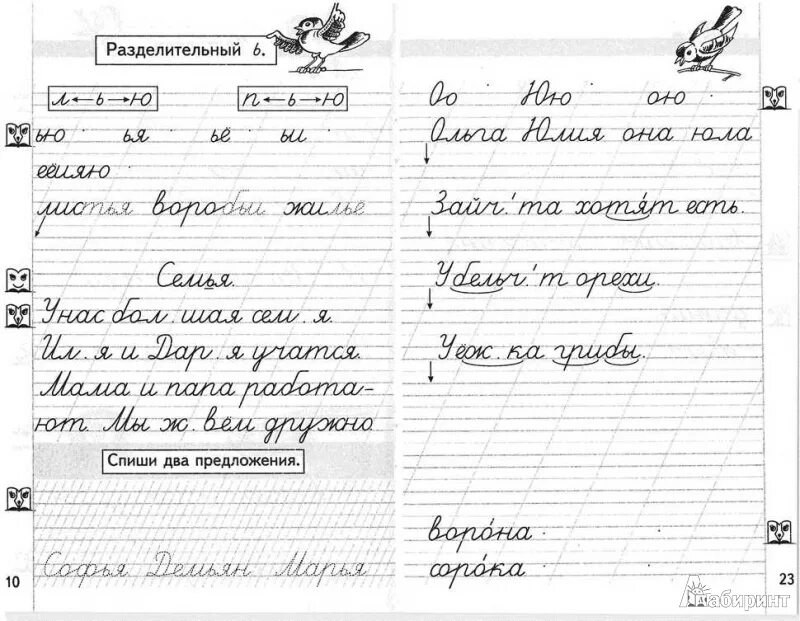 Разделительный ь.
л←ь→ю п←ь→ю
ью ья ьё ьи
еёияю
листья воробьи жильё
Семья.
У нас бол . шая сем . я.
Ил . я и Дар . я учатся.
Мама и папа работа-
ют. Мы ж . вём дружно
Спиши два предложения.
Софья Демьян Марья
10
Оо Юю ою
Ольга Юлия она юла
Зайч . та хотят есть.
У бельч . т орехи.
У ёж . ка грибы.
воро́на
соро́ка
23
Лабиринт